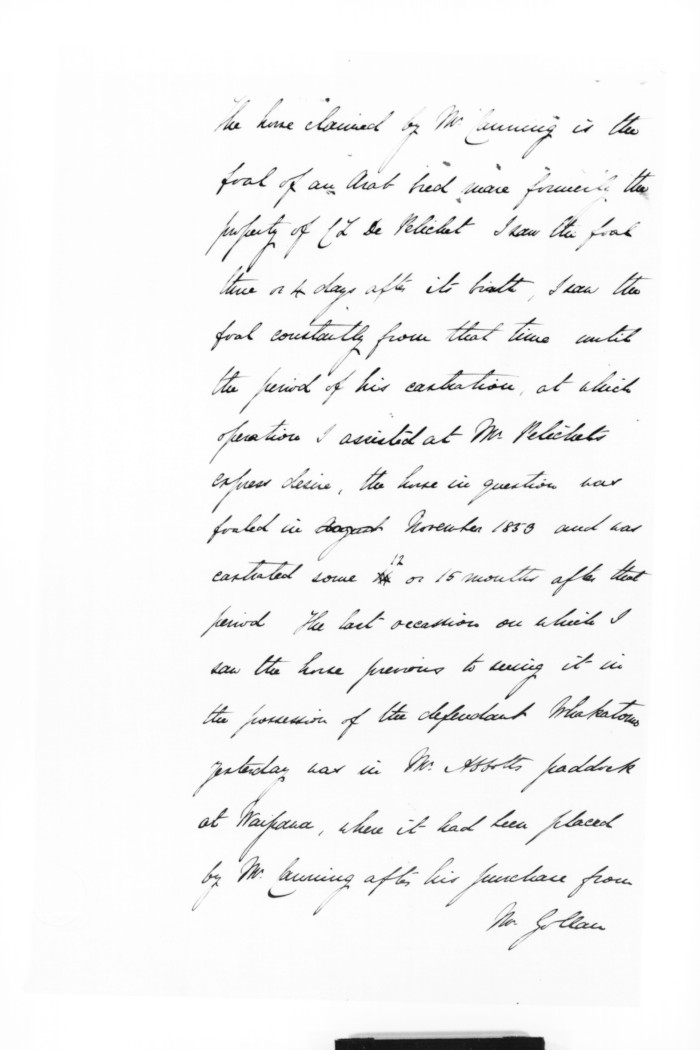 The horse claimed by Mr Canning is the
foal of an Arab bred mare formerly the
property of C L De Pelichet I saw the foal
three or 4 days after its birth, I saw the
foal constantly from that time until
the period of his castration, at which
operation I assisted at Mr Pelichets
express desire, the horse in question was
foaled in August November 1853 and was
castrated some 12 or 15 months after that
period The last occassion on which I
saw the horse previous to seeing it in
the possession of the defendant Whakatomo
yesterday was in Mr Abbotts paddock
at Waipawa, where it had been placed
by Mr. Canning after his purchase from
Mr Gollan